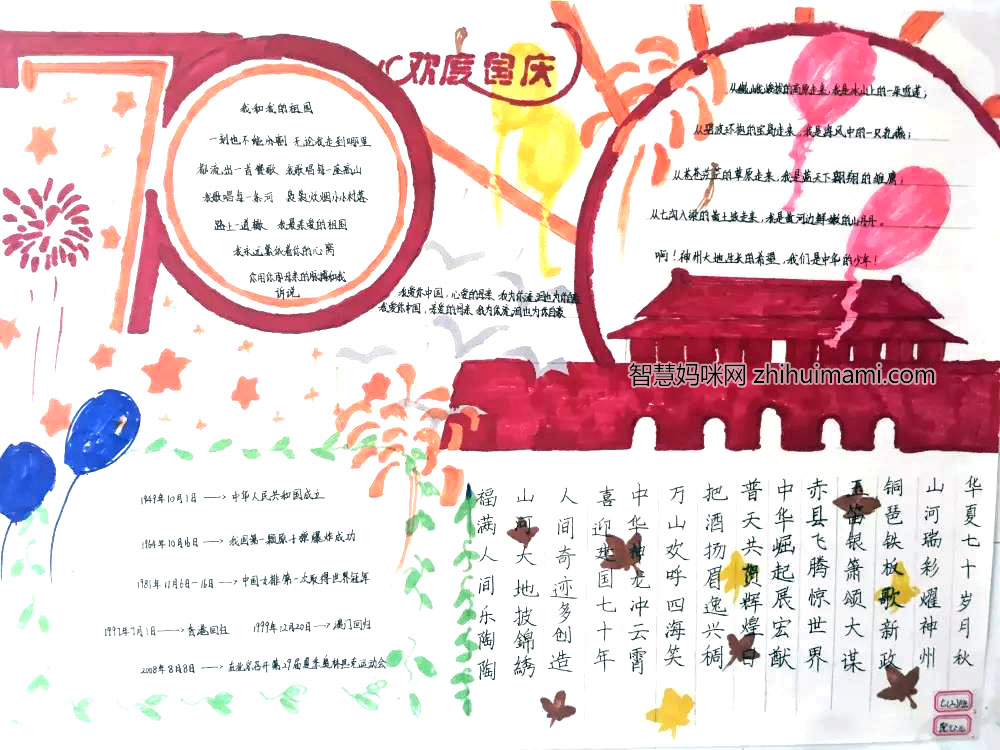 70
欢度国庆
我和我的祖国
一刻也不能分割 无论我走到哪里
都流出一首赞歌 我歌唱每一座高山
我歌唱每一条河 袅袅炊烟小小村落
路上一道辙 我最亲爱的祖国
我永远紧依着你的心窝
你用你那母亲的脉搏和我
诉说
我爱你中国，心爱的母亲，我为你流泪也为你
我爱你中国，亲爱的母亲，我为你流泪也为你自豪
从巍峨峻拔的高原走来，我是冰山上的一朵雪莲；
从碧波环抱的宝岛走来，我是海风中的一只乳燕；
从苍苍茫茫的草原走来，我是蓝天下翱翔的雄鹰；
从七沟八梁的黄土坡走来，我是黄河边鲜嫩的山丹丹。
啊！神州大地生长的希望，我们是中华的少年！
智慧妈咪网 zhihuimami.com
1949年10月1日 → 中华人民共和国成立
1964年10月16日 → 我国第一颗原子弹爆炸成功
1981年11月6日-16日 → 中国女排第一次取得世界冠军
1997年7月1日 → 香港回归 1999年12月20日 → 澳门回归
2008年8月8日 → 在北京召开第29届夏季奥林匹克运动会
华夏七十岁月秋
山河瑞彩耀神州
铜琶铁板歌新政
玉笛银箫颂大谋
赤县飞腾惊世界
中华崛起展宏猷
普天共贺辉煌日
把酒扬眉逸兴稠
万山欢呼四海笑
中华神龙冲云霄
喜迎建国七十年
人间奇迹多创造
山河大地披錦綉
福满人间乐陶陶